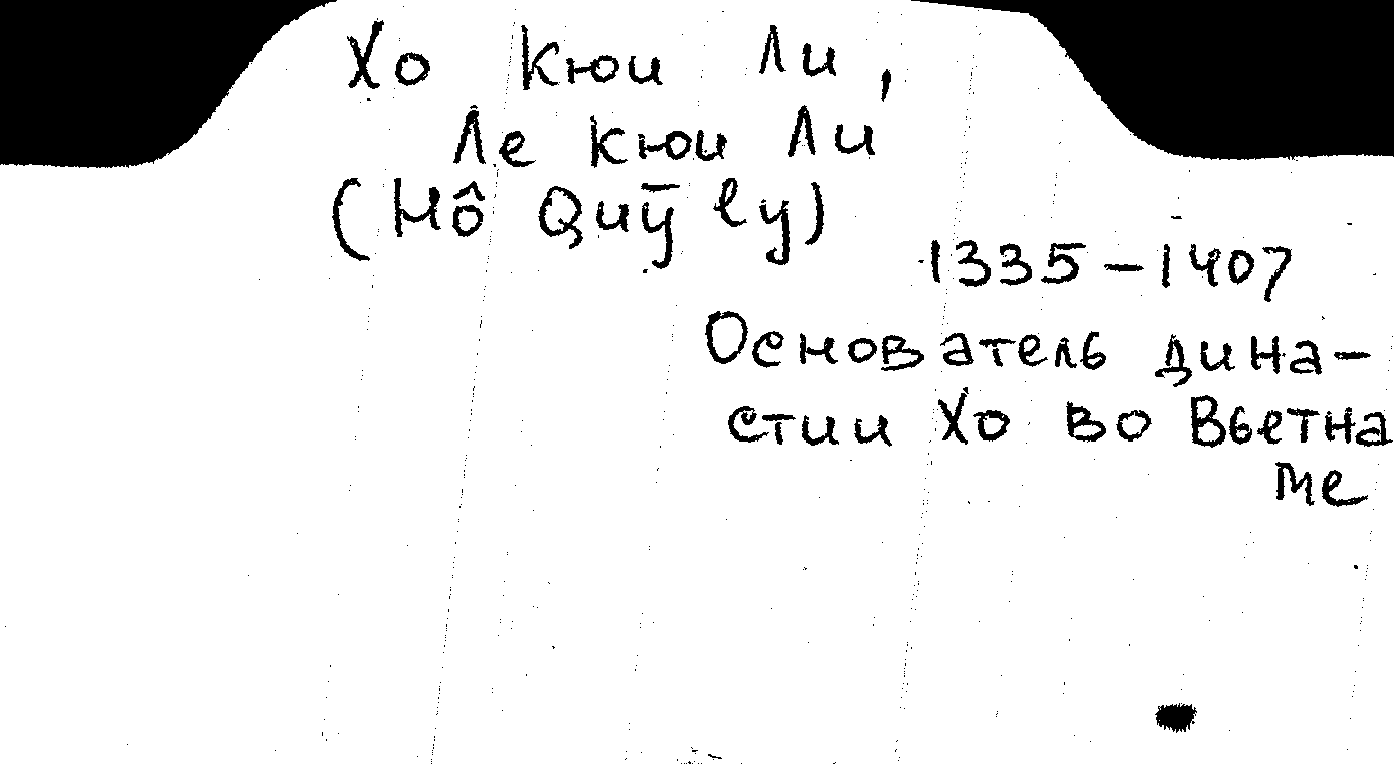 Хо Кюи Ли,
Ле Кюи Ли
(Hô Quȳ ly)
1335-1407
Основатель дина-
стии Хо во Вьетна
ме